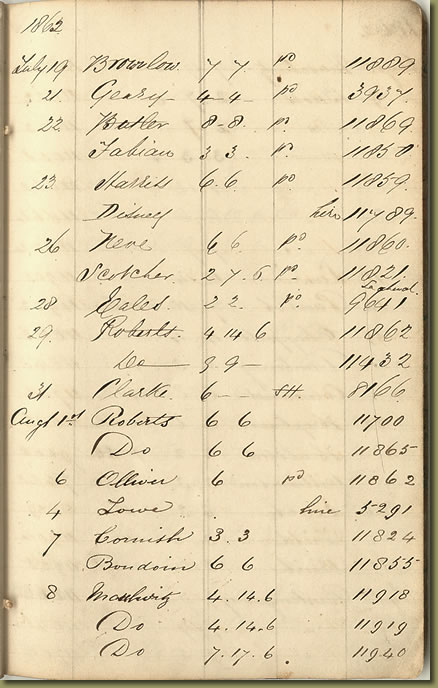 1862
July 19 Brownlow 7 7. pd 11889
21. Geary 4 - 4 - pd 3937.
22. Butler 8 - 8. pd 11869
Fabian 3 3. pd 11858
23. Harris 6. 6 pd 11859.
Disney hire 11789.
26 Neve 6 6 pd 11860.
Scotcher. 2 7. 6 pd 11821.
28 Eales 2 2. pd 9641
29. Roberts. 4 14 6 11862
Do 3 9 - 11432
31 Clarke. 6 - - 8166
Augt 1st Roberts 6 6 11700
Do 6 6 11865
6 Ollivier 6 pd 11862
4 Lowe . hire 5291
7 Cornish 3. 3 11824
Boudoin 6 6 11855
8 4. 14. 6 11918
Do 4. 14. 6 11919
Do 7. 17. 6 . 11940